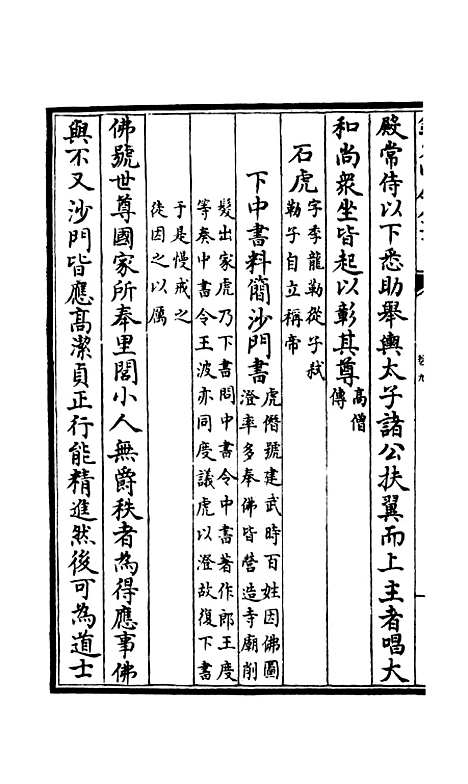 殿常侍以下悉助舉輿太子諸公扶翼而上主者唱大
和尚衆坐皆起以彰其尊
高僧
傳
石虎
字季龍勒從子弒
勒子自立稱帝
下中書料簡沙門書
虎僭號建武時百姓因佛圖
澄率多奉佛皆營造寺廟削
髮出家虎乃下書問中書令中書著作郎王度
等奏中書令王波亦同度議虎以澄故復下書
于是慢戒之
徒因之以厲
佛號世尊國家所奉里閭小人無爵秩者為得應事佛
與不又沙門皆應高潔貞正行能精進然後可為道士